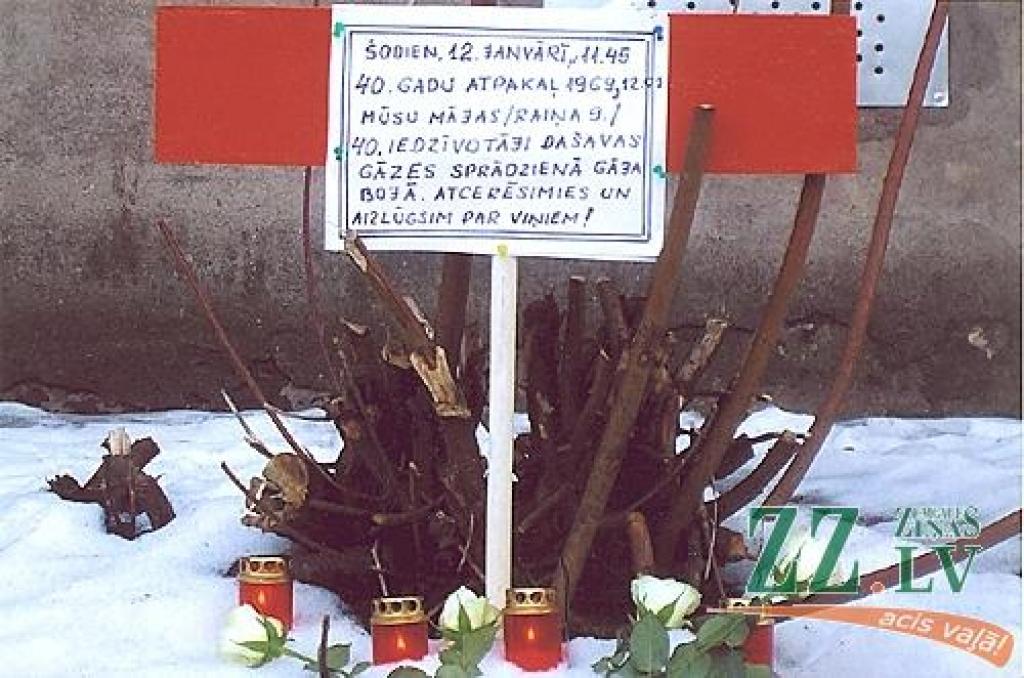 ŠODIEN, 12. JANVĀRĪ, 11.45
40. GADU ATPAKAĻ 1969, 12.01
MŪSU MĀJAS/RAIŅA 9./
40. IEDZĪVOTĀJI DAŠAVAS
GĀZES SPRĀDZIENĀ GĀJA
BOJĀ. ATCERĒSIMIES UN
AIZLŪGSIM PAR VIŅIEM!
ZEMGALES
ZIŅAS
ZZ.LV
acis vaļā!